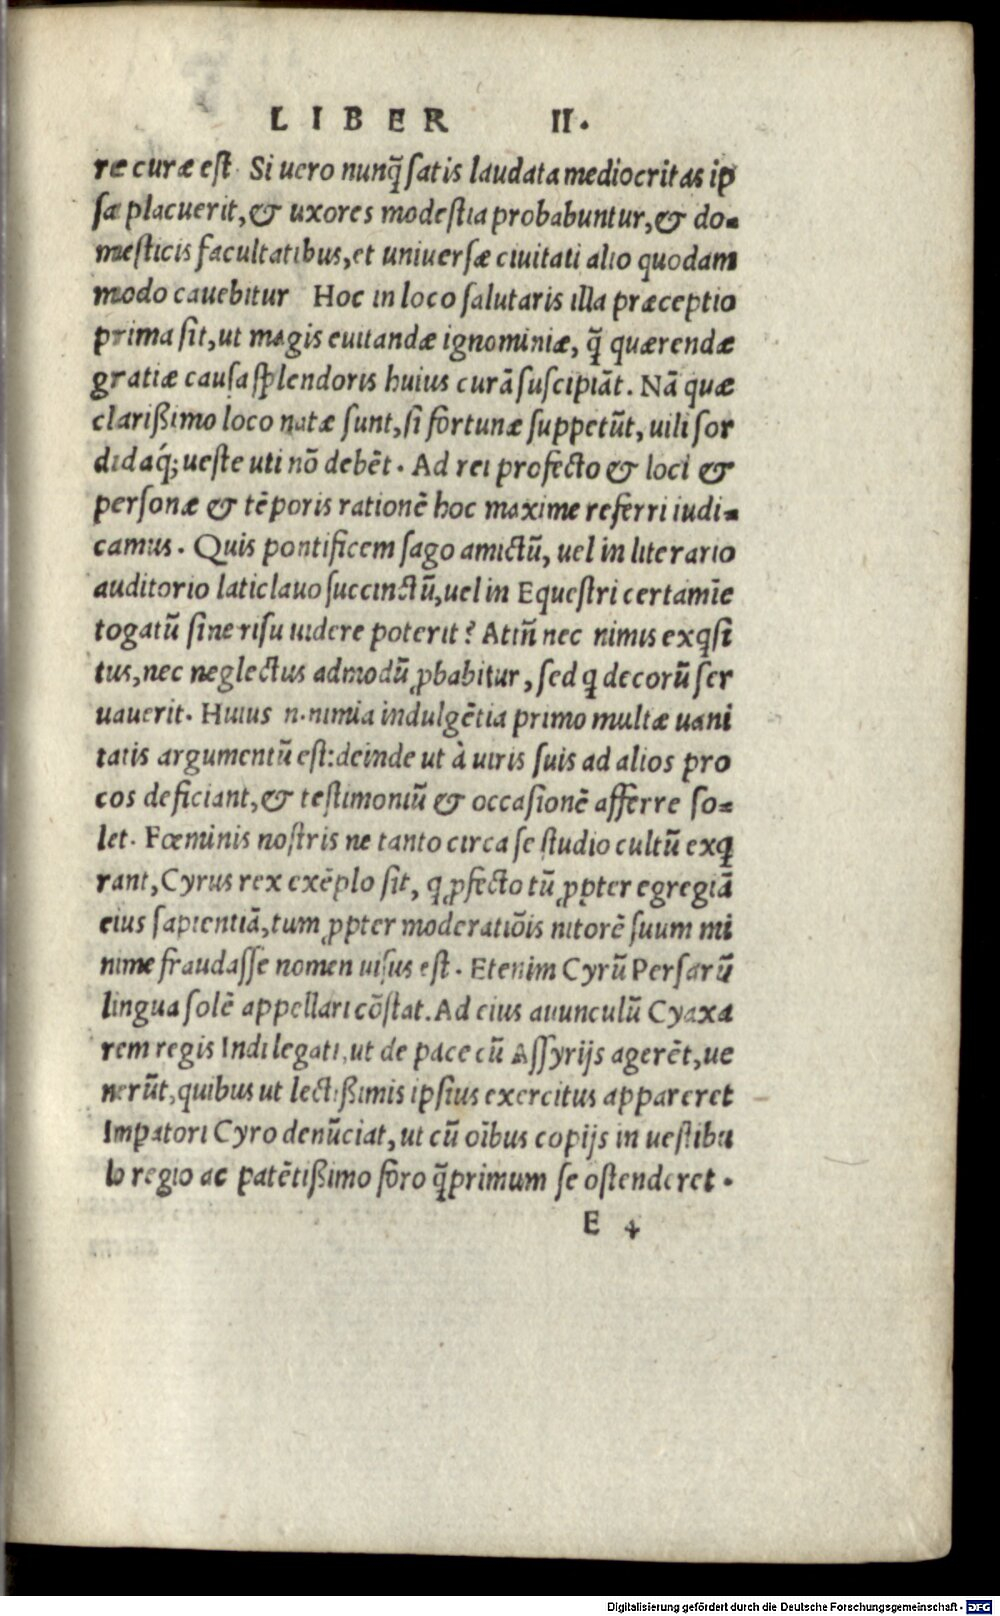 LIBER II.
ræ curæ est Si uero nunq̃ satis laudata mediocritas ip
sa placuerit, & uxores modestia probabuntur, & do-
mesticis facultatibus, et uniuersæ ciuitati alio quodam
modo cauebitur Hoc in loco salutaris illa præceptio
prima sit, ut magis euitandæ ignominiæ, q̃ quærendæ
gratiæ causa splendoris huius curã suscipiãt. Nã quæ
clarißimo loco natæ sunt, si fortunæ suppetũt, uili sor
didaq́; ueste uti nõ debẽt. Ad rei profecto & loci &
personæ & tẽporis rationẽ hoc maxime referri iudi-
camus. Quis pontificem sago amictũ, uel in literario
auditorio laticlauo succinctũ, uel in Equestri certamĩe
togatũ sine risu uidere poterit? Atiñ nec nimis exꝗsi
tus, nec neglectus admodũ ꝓbabitur, sed ꝗ decorũ ser
uauerit. Huius n. nimia indulgẽtia primo multæ uani
tatis argumentũ est: deinde ut à uiris suis ad alios pro
cos deficiant, & testimoniũ & occasionẽ afferre so-
let. Fœminis nostris ne tanto circa se studio cultũ exꝗ
rant, Cyrus rex exẽplo sit, ꝗ ꝓfecto tũ ꝓpter egregiã
eius sapientiã, tum ꝓpter moderatiõis nitorẽ suum mi
nime fraudasse nomen uisus est. Etenim Cyrũ Persarũ
lingua solẽ appellari cõstat. Ad eius auunculũ Cyaxa
rem regis Indi legati, ut de pace cũ Assyrijs agerẽt, ue
nerũt, quibus ut lectißimis ipsius exercitus appareret
Imꝑatori Cyro denũciat, ut cũ oĩbus copijs in uestibu
lo regio ac patẽtißimo foro q̃primum se ostenderet.
E 4
Digitalisierung gefördert durch die Deutsche Forschungsgemeinschaft - DFG